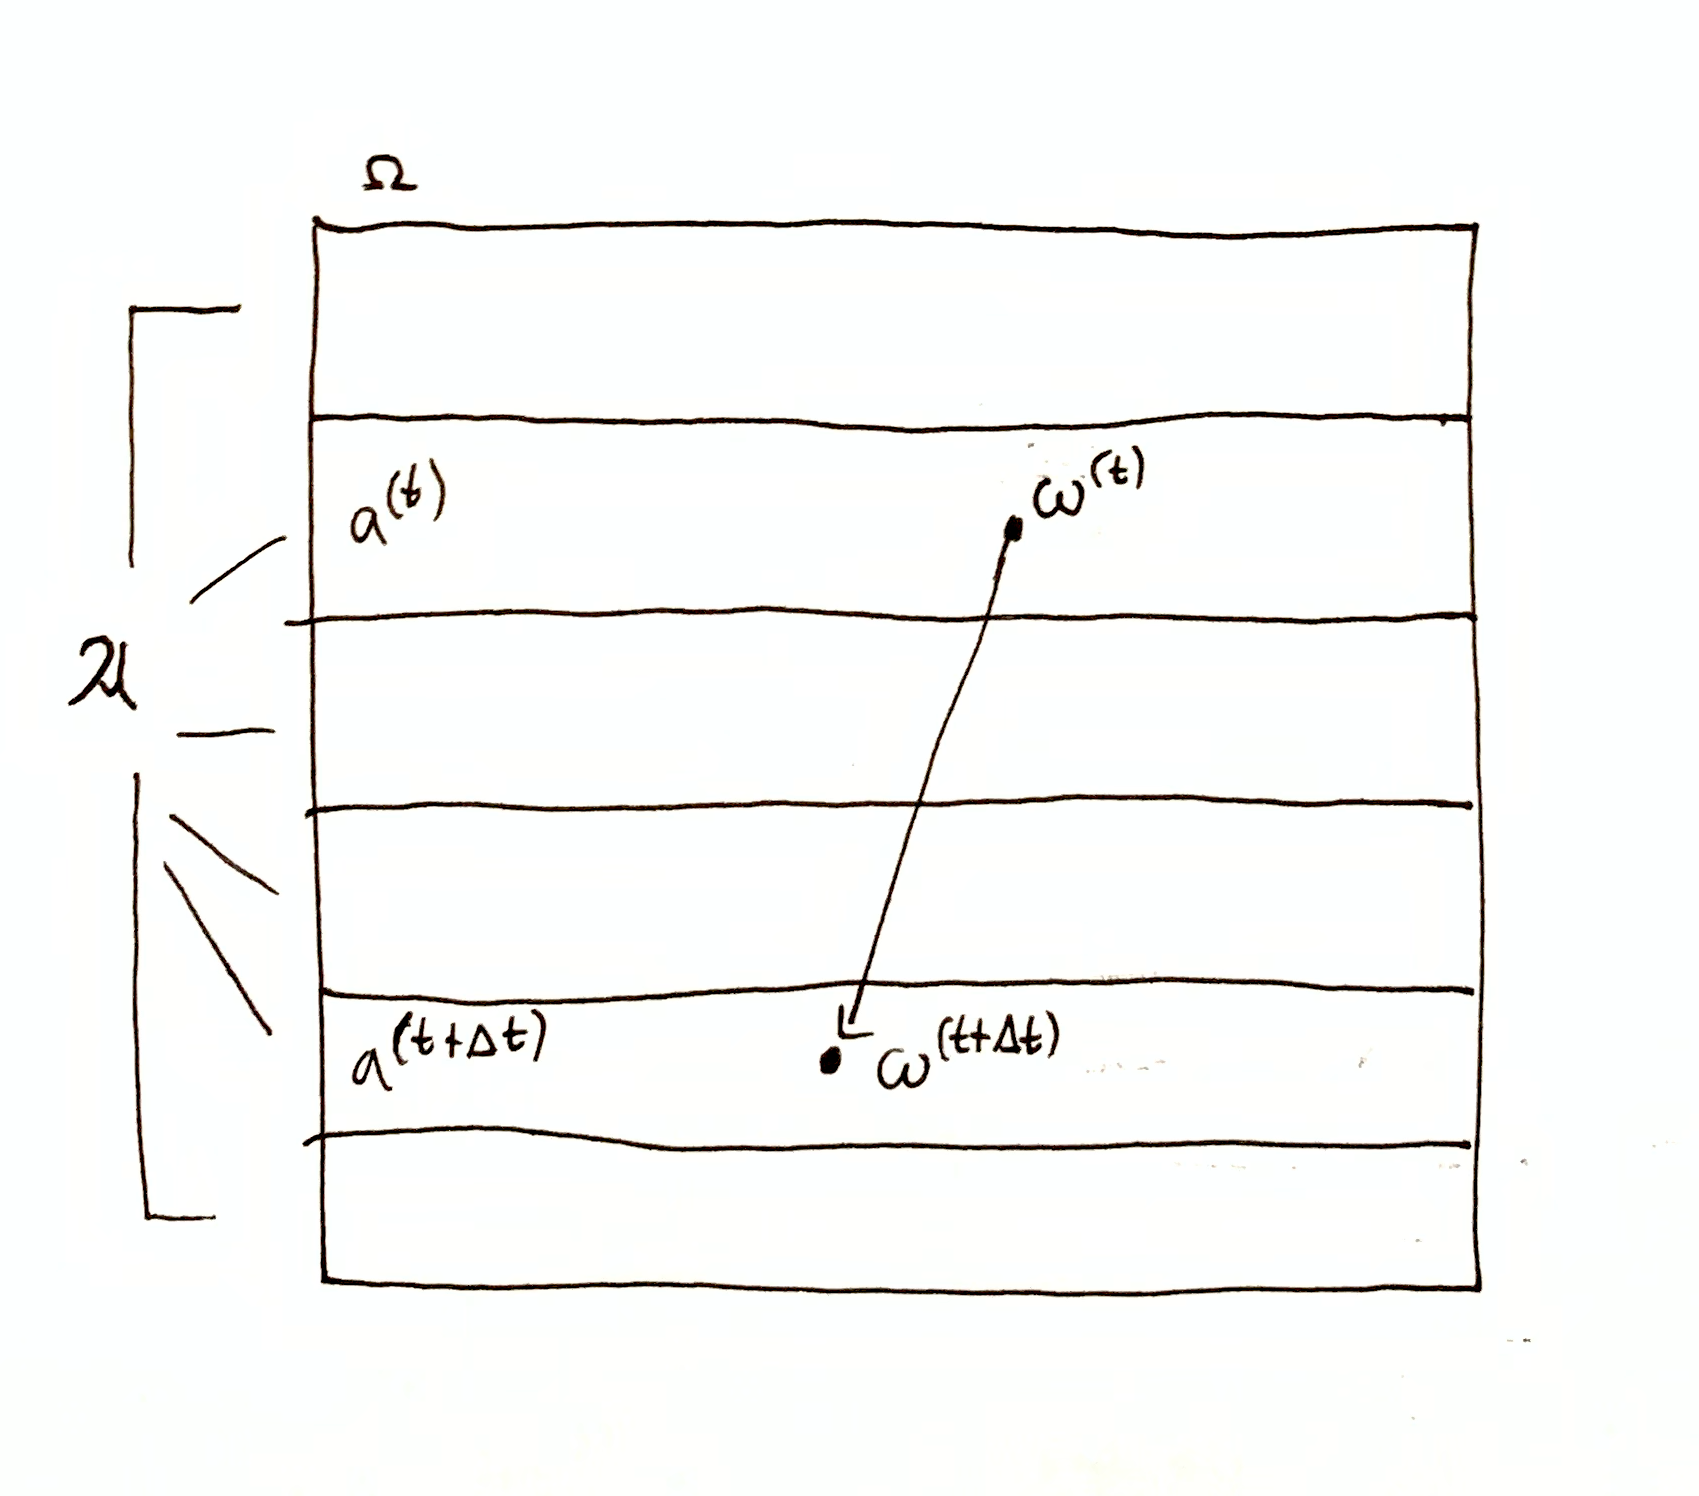 Ω
a^(t)
ω^(t)
a^(t+Δt)
ω^(t+Δt)